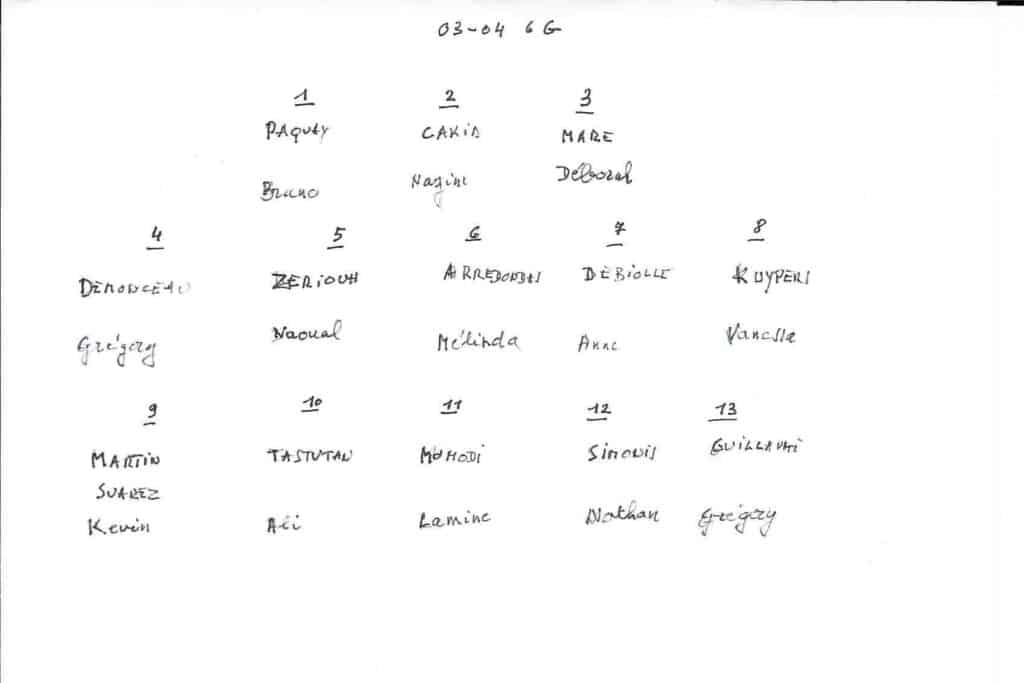 03-04 6 G
1 2 3
PAQUAY CAKIR MARE
Bruno Nazine Deborah
4 5 6 7 8
DEMONCEAU ZERIOUH ARREDONDAS DEBIOLLE KUYPERS
Grégory Naoual Mélinda Anne Vanessa
9 10 11 12 13
MARTIN TASTUTAN SIMONIS GUILLAUME
SUAREZ
Kevin Ali Lamine Nathan Grégory